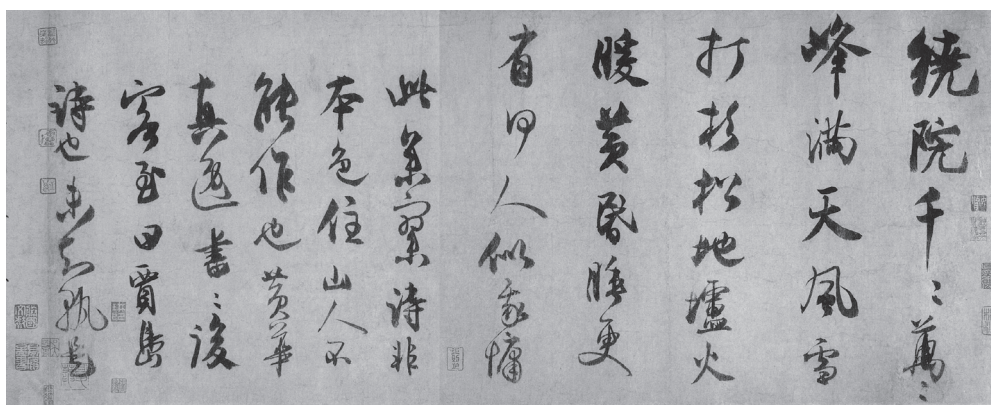 繞院千〻萬〻
峰滿天風雪
打杉松地壚火
暖黃昬睡更
有何人似我慵
此參寥詩非
本色住山人不
能作也黃華
真逸書〻後
客至曰賈島
詩也未知孰是